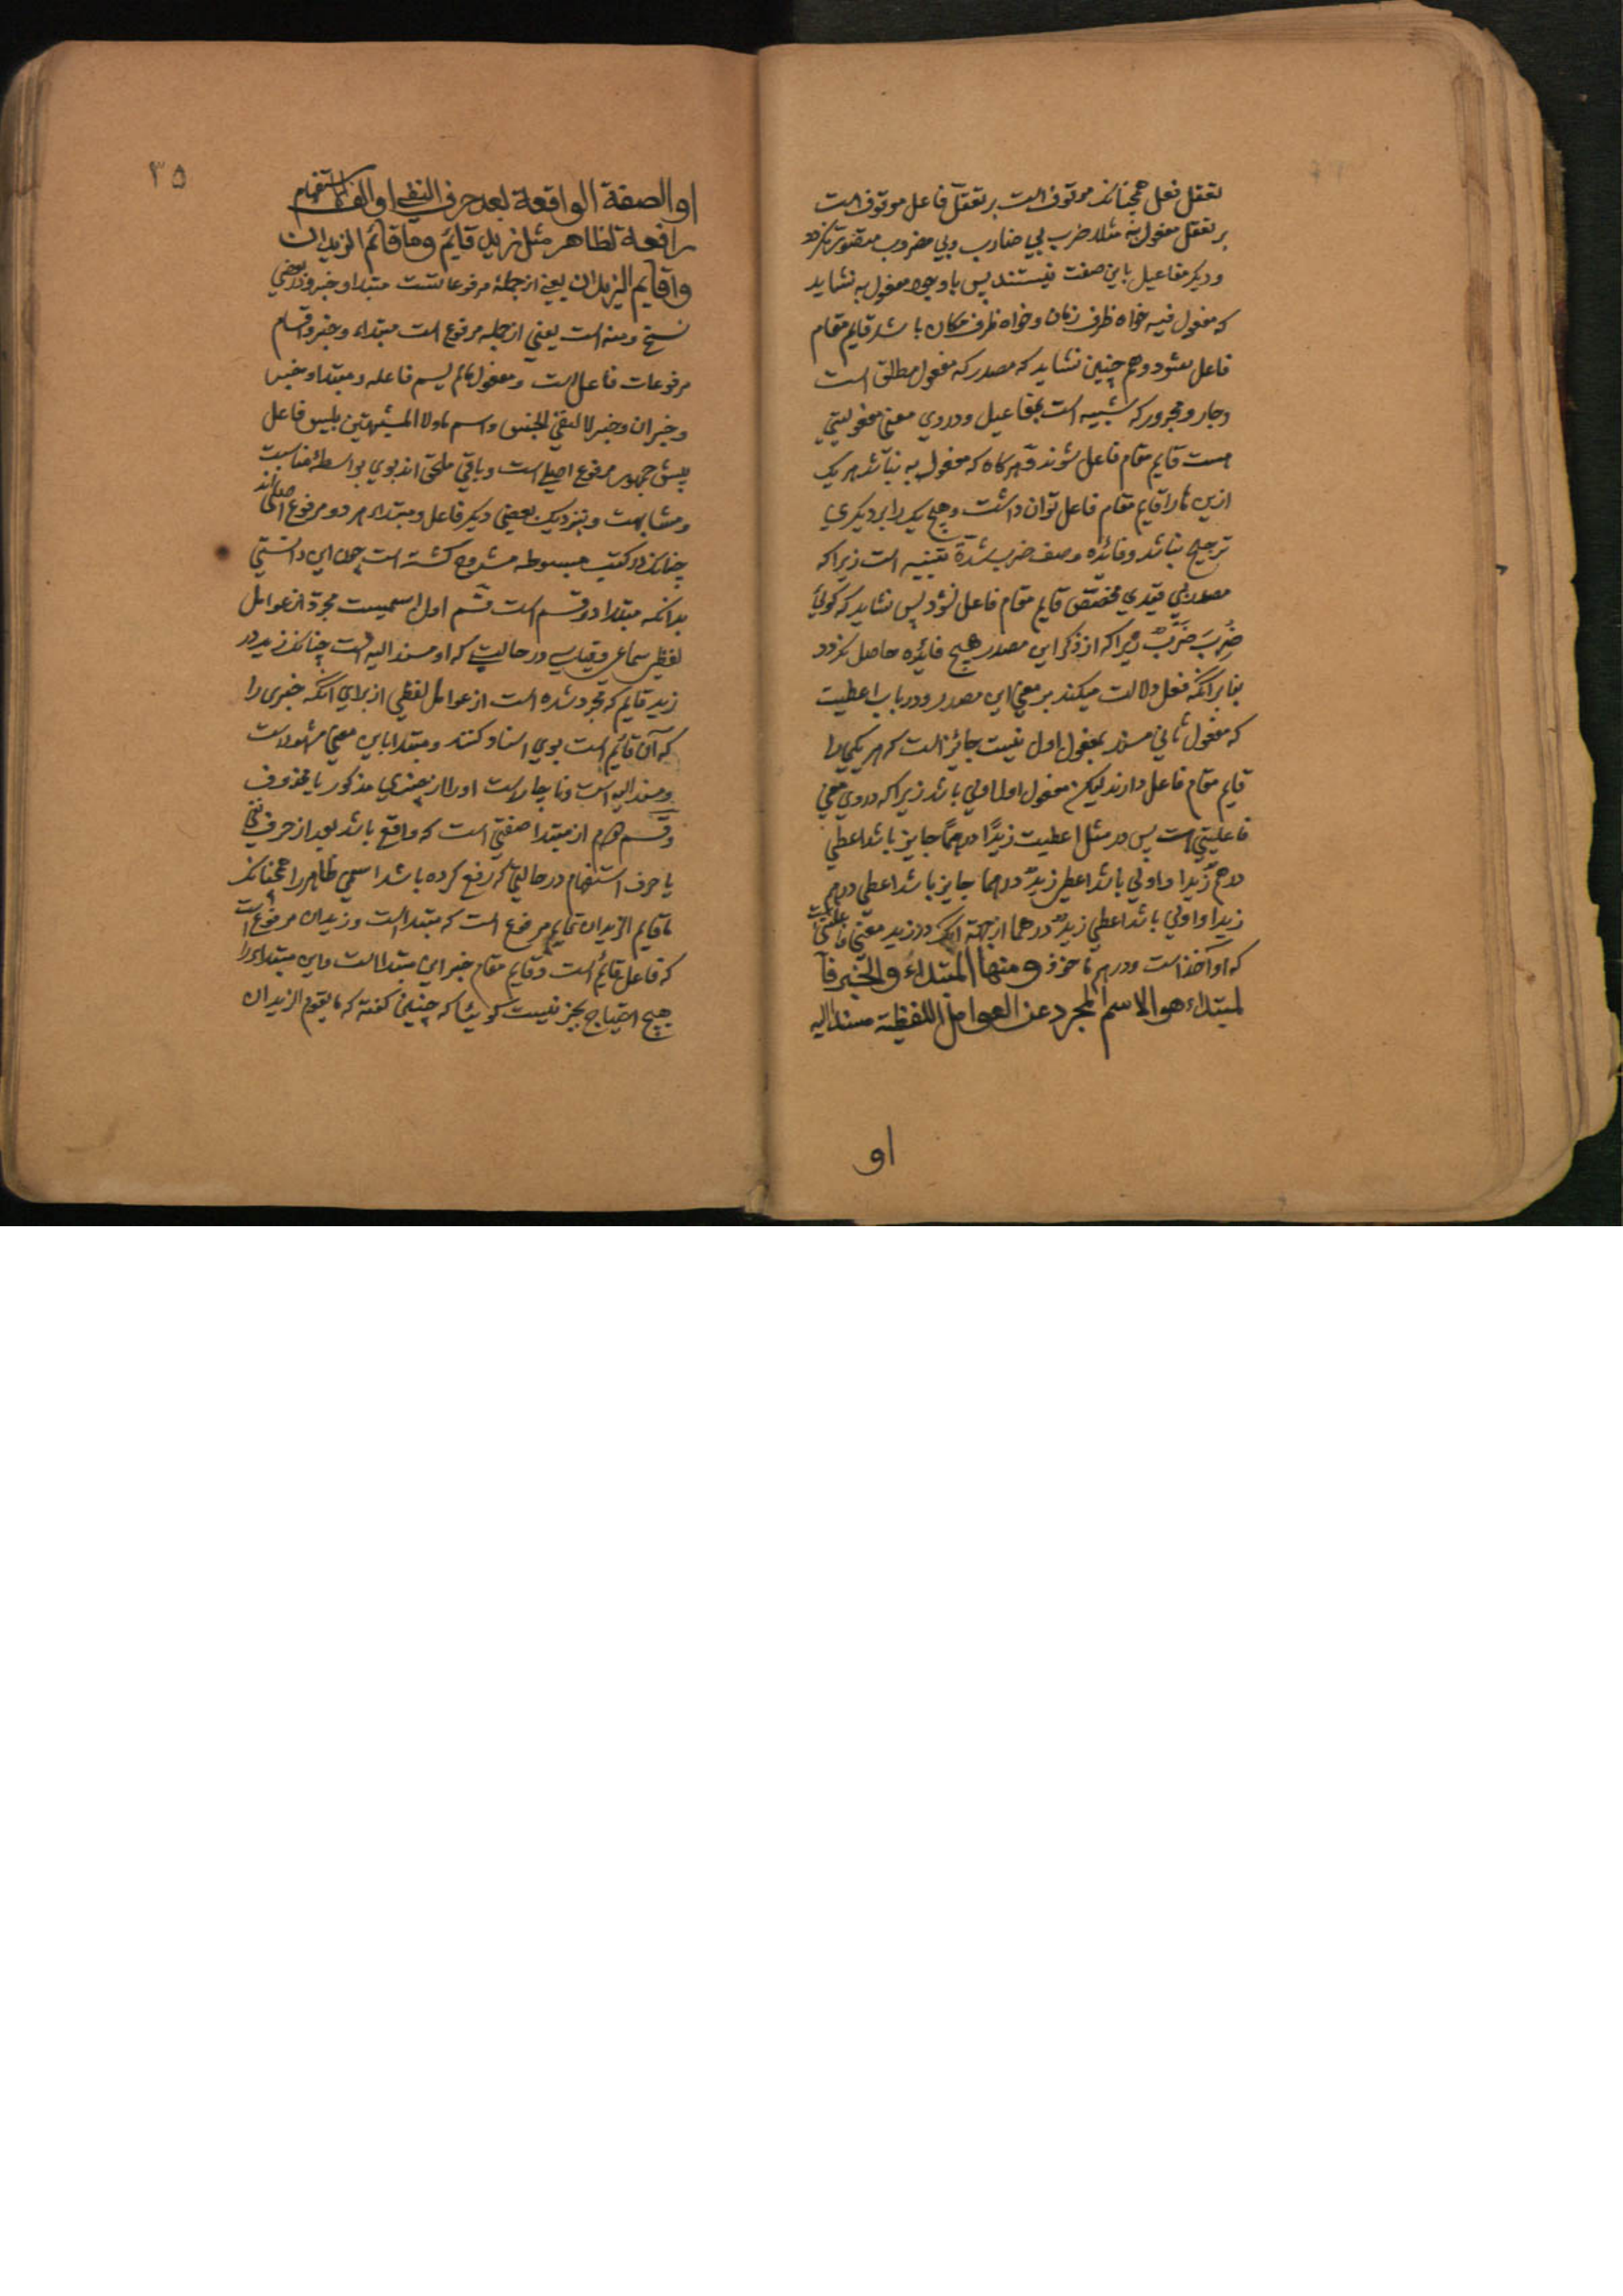 تعقل فعل همچنانکه موقوف است بر تعقل فاعل موقوف است
بر تعقل مفعول به مثلا ضرب بی ضارب وبی مضروب متصور نکردد
ودیکر مفاعیل باین صفت نیستند پس باوجود مفعول به نشاید
که مفعول فیه خواه ظرف زمان وخواه ظرف مکان باشد قایم مقام
فاعل شود وهم چنین نشاید که مصدر که مفعول مطلق است
وجار ومجرور که شبیه است بمفاعیل ودروی معنی مفعولیتی
هست قایم مقام فاعل شوند وهرکاه که مفعول به نباشد هر یک
ازین ها را قایم مقام فاعل توان داشت وهیچ یک را بر دیکری
ترجیح نباشد وفائده وصف ضرب بشدة تنبیه است زیرا که
مصدر بی قیدی مخصص قایم مقام فاعل نشود پس نشاید که کوئی
ضُرِبَ ضَرْبٌ زیرا که از ذکر این مصدر هیچ فائده حاصل نکردد
بنا بر آنکه فعل دلالت میکند بر معنی این مصدر ودر باب اعطیت
که مفعول ثانی مسند بمفعول اول نیست جائز است که هر یکی را
قایم مقام فاعل دارند لیکن مفعول اول اولی باشد زیرا که دروی معنی
فاعلیتی است پس در مثل اعطیت زیدًا درهمًا جایز باشد اعطی
درهم زیدا واولی باشد اعطی زیدٌ درهما جایز باشد اعطی درهم
زیدا واولی باشد اعطی زیدٌ درهما از جهة آنکه در زید معنی فاعلیتی است
که او آخذ است ودرهم ماخوذ ومنها المبتداء والخبر فا
لمبتداء هو الاسم المجرد عن العوامل اللفظیة مسندا الیه
او
۳۵
او الصفة الواقعة بعد حرف النفی او الف الاستفهام
رافعة لظاهر مثل زید قائم وما قائم الزیدان
واقایم الزیدان یعنی از جملهٔ مرفوعاتست مبتدا وخبر ودر بعضی
نسخ ومنه است یعنی از جمله مرفوع است مبتداء وخبر واقسام
مرفوعات فاعل است ومفعول مالم یسم فاعله ومبتدا وخبر
وخبر ان وخبر لا لنفی الجنس واسم ما ولا المشبهتین بلیس فاعل
پیش جمهور مرفوع اصلی است وباقی ملحق اند بوی بواسطهٔ مناسبت
ومشابهت وبنزدیک بعضی دیکر فاعل ومبتداء هر دو مرفوع اصلی اند
چنانکه در کتب مبسوطه مشروح کشته است چون این دانستی
بدانکه مبتدا دو قسم است قسم اول اسمیست مجرد از عوامل
لفظی سماعی وقیاسی در حالیتی که او مسند الیه است چنانکه زید در
زید قایم که مجرد شده است از عوامل لفظی از برای آنکه خبری را
که آن قائم است بوی اسناد کنند ومبتدا باین معنی مشهور است
ومسند الیه است وناچار است او را از چیزی مذکور یا محذوف
وقسم دوم از مبتدا صفتی است که واقع باشد بعد از حرف نفی
یا حرف استفهام در حالتی که رفع کرده باشد اسمی ظاهر را همچنانکه
ما قایم الزیدان قایم مرفوع است که مبتدا است وزیدان مرفوع است
که فاعل قائم است وقایم مقام خبر این مبتدا است واین مبتداء را
هیچ احتیاج بخبر نیست کوئیا که چنین کفته که ما یقوم الزیدان